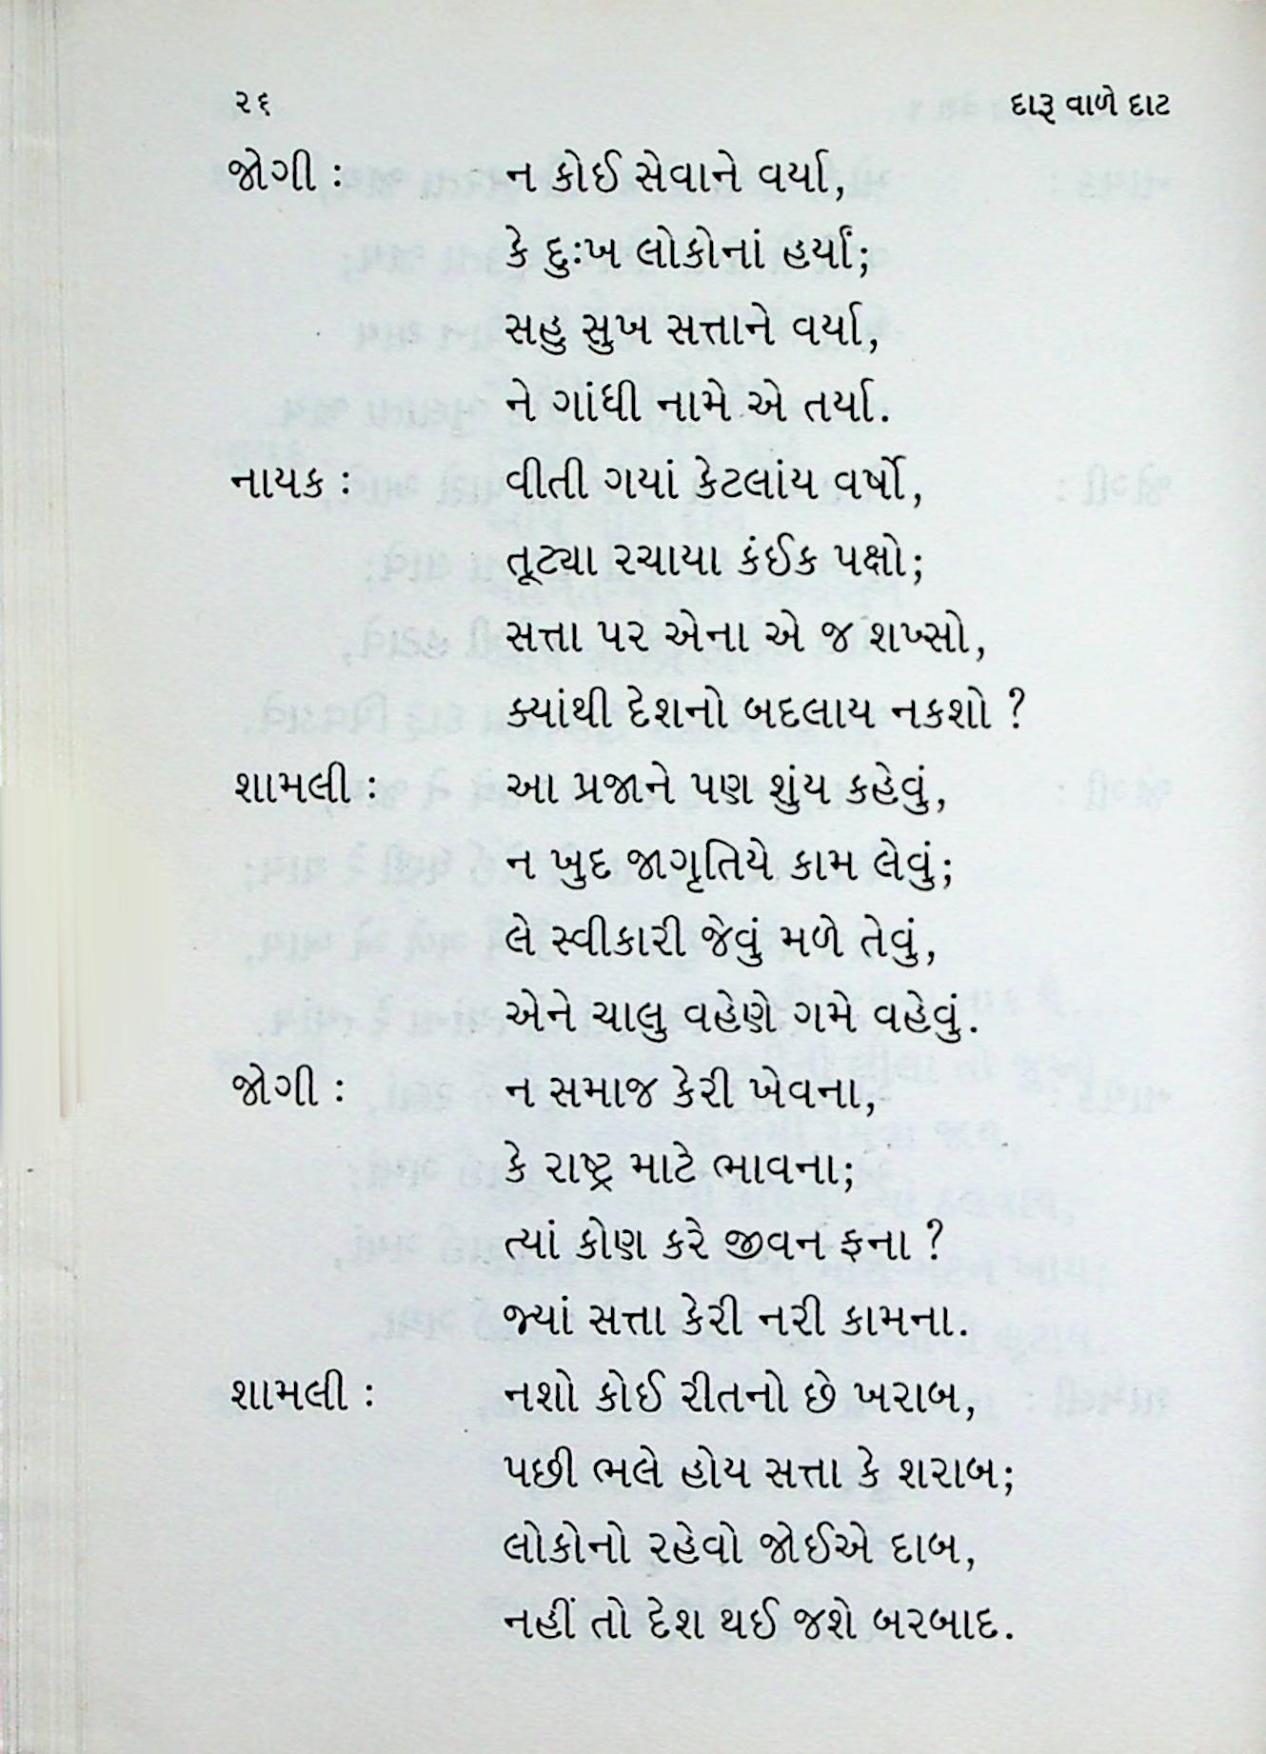 ૨૬ દારૂ વાળે દાટ
જોગી : ન કોઈ સેવાને વર્યા,
કે દુઃખ લોકોનાં હર્યાં;
સહુ સુખ સત્તાને વર્યા,
ને ગાંધી નામે એ તર્યા.
નાયક : વીતી ગયાં કેટલાંય વર્ષો,
તૂટ્યા રચાયા કંઈક પક્ષો;
સત્તા પર એના એ જ શખ્સો,
ક્યાંથી દેશનો બદલાય નકશો ?
શામલી : આ પ્રજાને પણ શુંય કહેવું,
ન ખુદ જાગૃતિયે કામ લેવું;
લે સ્વીકારી જેવું મળે તેવું,
એને ચાલુ વહેણે ગમે વહેવું.
જોગી : ન સમાજ કેરી ખેવના,
કે રાષ્ટ્ર માટે ભાવના;
ત્યાં કોણ કરે જીવન ફના ?
જ્યાં સત્તા કેરી નરી કામના.
શામલી : નશો કોઈ રીતનો છે ખરાબ,
પછી ભલે હોય સત્તા કે શરાબ;
લોકોનો રહેવો જોઈએ દાબ,
નહીં તો દેશ થઈ જશે બરબાદ.